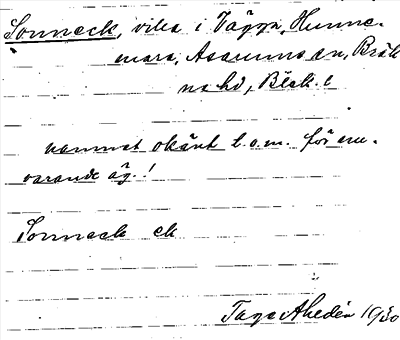 Sonneck, villa i Vägga, Hunne-
mara, Asarums sn, Bräk
ne hd, Blek. l
namnet okänt t.o.m. för nu-
varande äg.!
Sonneck ck
Tage Ahldén 1930